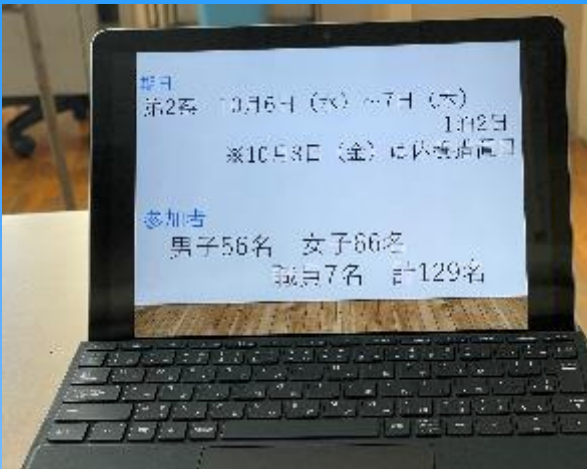 期日
第2案 10月6日（水）～7日（木）
1泊2日
※10月8日（金）は休養措置日
参加者
男子56名 女子66名
職員7名 計129名